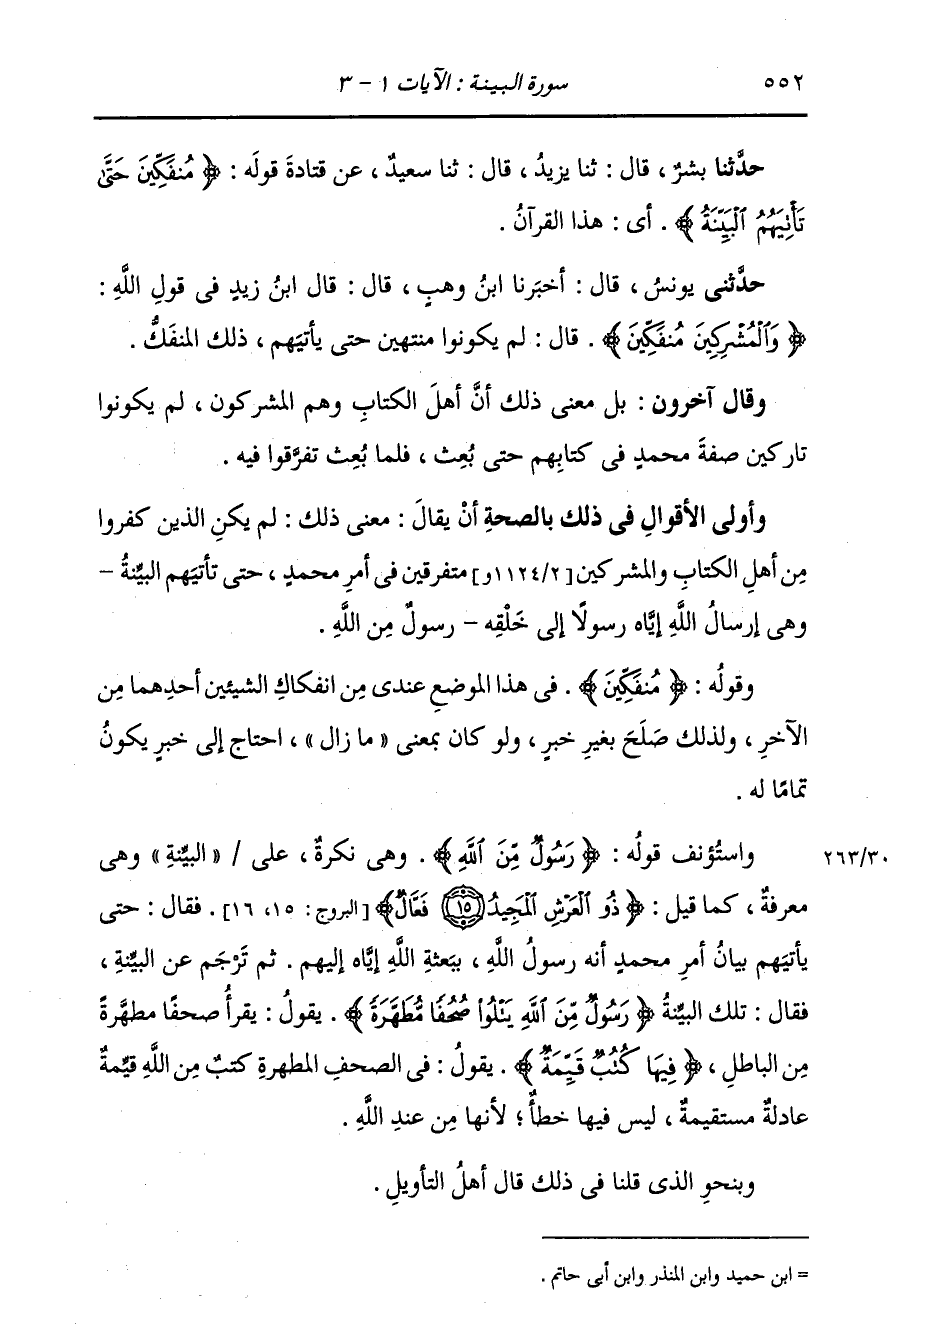 ٥٥٢ سورة البينة : الآيات ١ - ٣
حدَّثنا بشرٌ ، قال : ثنا يزيدُ ، قال : ثنا سعيدٌ ، عن قتادةَ قولَه : ﴿ مُنفَكِّينَ حَتَّىٰ
تَأْتِيَهُمُ ٱلْبَيِّنَةُ ﴾ . أى : هذا القرآنُ .
حدَّثنى يونسُ ، قال : أخبَرنا ابنُ وهبٍ ، قال : قال ابنُ زيدٍ فى قولِ اللَّهِ :
﴿ وَٱلْمُشْرِكِينَ مُنفَكِّينَ ﴾ . قال : لم يكونوا منتهين حتى يأتيَهم ، ذلك المنفَكُّ .
وقال آخرون : بل معنى ذلك أنَّ أهلَ الكتابِ وهم المشركون ، لم يكونوا
تاركين صفةَ محمدٍ فى كتابِهم حتى بُعِث ، فلما بُعِث تفرَّقوا فيه .
وأولى الأقوالِ فى ذلك بالصحةِ أنْ يقالَ : معنى ذلك : لم يكنِ الذين كفروا
مِن أهلِ الكتابِ والمشركين [١١٢٤/٢و] متفرقين فى أمرِ محمدٍ ، حتى تأتيَهم البيِّنةُ -
وهى إرسالُ اللَّهِ إيَّاه رسولًا إلى خَلْقِه - رسولٌ مِن اللَّهِ .
وقولُه : ﴿ مُنفَكِّينَ ﴾ . فى هذا الموضعِ عندى مِن انفكاكِ الشيئين أحدِهما مِن
الآخرِ ، ولذلك صَلَحَ بغيرِ خبرٍ ، ولو كان بمعنى « ما زال » ، احتاج إلى خبرٍ يكونُ
تمامًا له .
واستُؤنف قولُه : ﴿ رَسُولٌ مِّنَ ٱللَّهِ ﴾ . وهى نكرةٌ ، على / « البيِّنةِ » وهى ٢٦٣/٣٠
معرفةٌ ، كما قيل : ﴿ ذُو ٱلْعَرْشِ ٱلْمَجِيدُ ١٥ فَعَّالٌ ﴾ [البروج : ١٥، ١٦] . فقال : حتى
يأتيَهم بيانُ أمرِ محمدٍ أنه رسولُ اللَّهِ ، ببَعثةِ اللَّهِ إيَّاه إليهم . ثم تَرْجَم عن البيِّنةِ ،
فقال : تلك البيِّنةُ ﴿ رَسُولٌ مِّنَ ٱللَّهِ يَتْلُوا۟ صُحُفًا مُّطَهَّرَةً ﴾ . يقولُ : يقرأُ صحفًا مطهَّرةً
مِن الباطلِ ، ﴿ فِيهَا كُتُبٌ قَيِّمَةٌ ﴾ . يقولُ : فى الصحفِ المطهرةِ كتبٌ مِن اللَّهِ قيِّمةٌ
عادلةٌ مستقيمةٌ ، ليس فيها خطأٌ ؛ لأنها مِن عندِ اللَّهِ .
وبنحوِ الذى قلنا فى ذلك قال أهلُ التأويلِ .
= ابن حميد وابن المنذر وابن أبى حاتم .